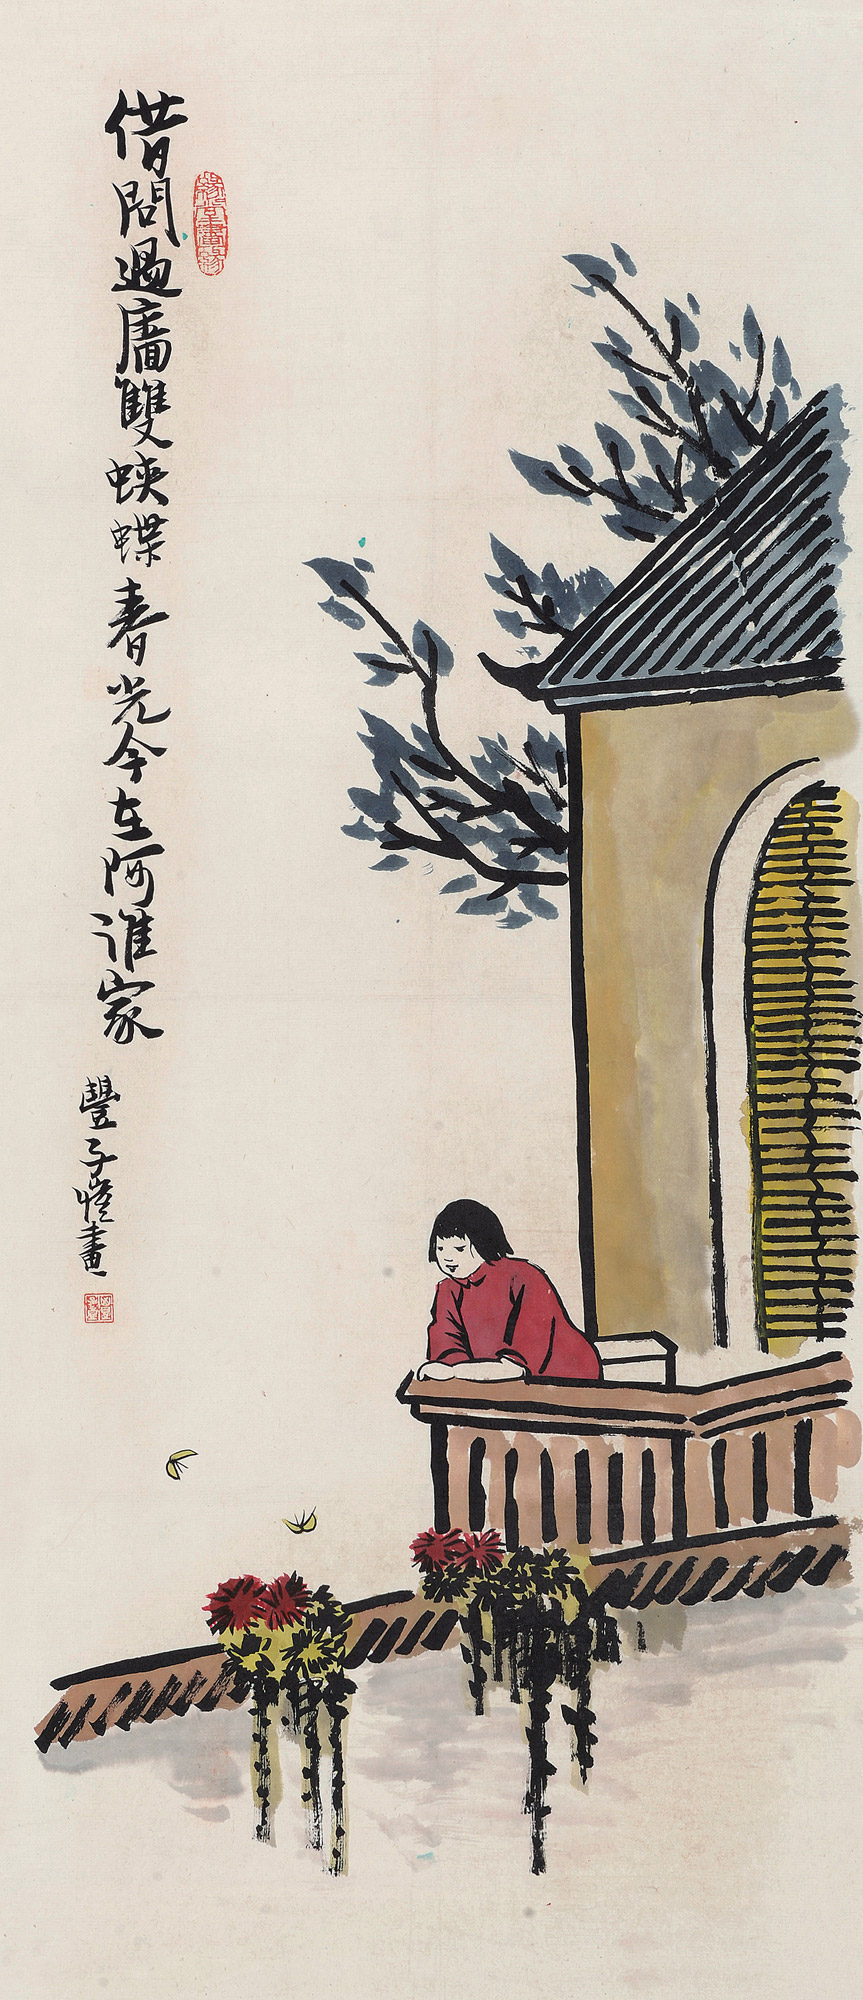 借問過廧雙蛺蝶春光今在阿誰家
豐子愷畫